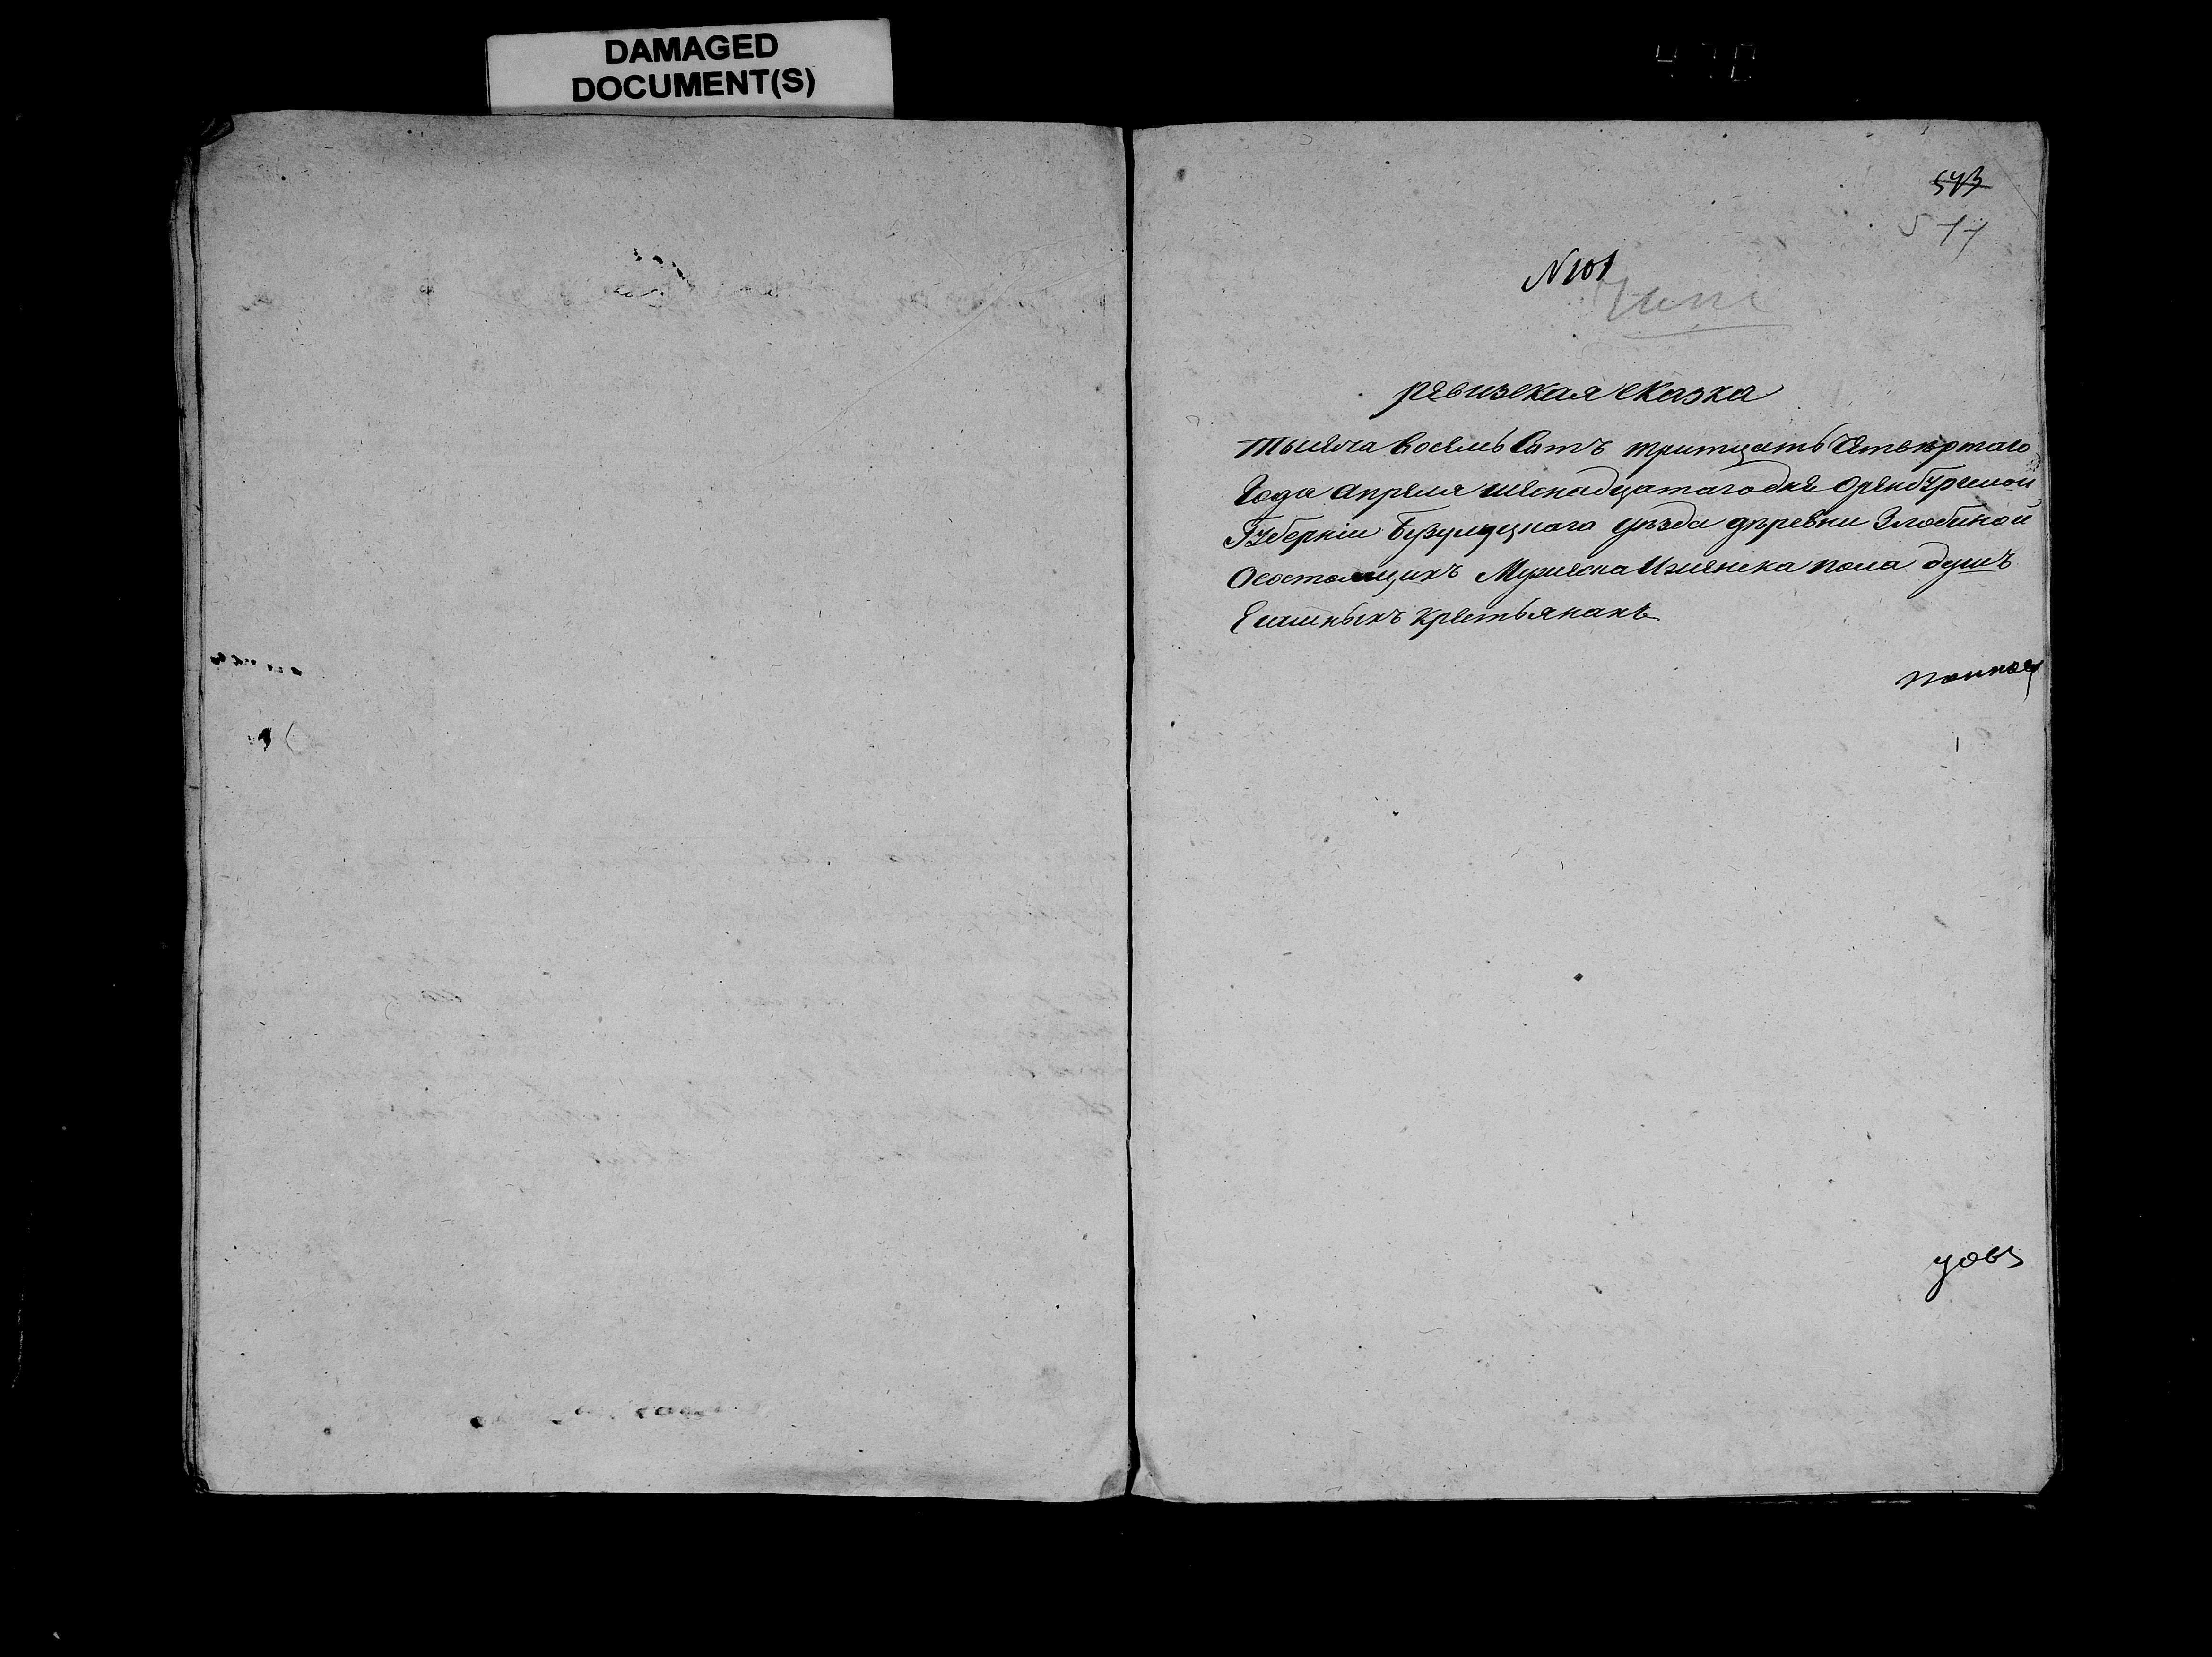 DAMAGED
DOCUMENT(S)
543
577
N 101
ревизская сказка
тысяча восемь сотъ тритцать Четвертаго
Года апреля шеснадцатаго дня Оренбурской
Губерніи Бузулуцкаго уѣзда деревни Злобиной
Осостоящихъ Мужеска Иженска пола душъ
Ешашныхъ крестьянахъ